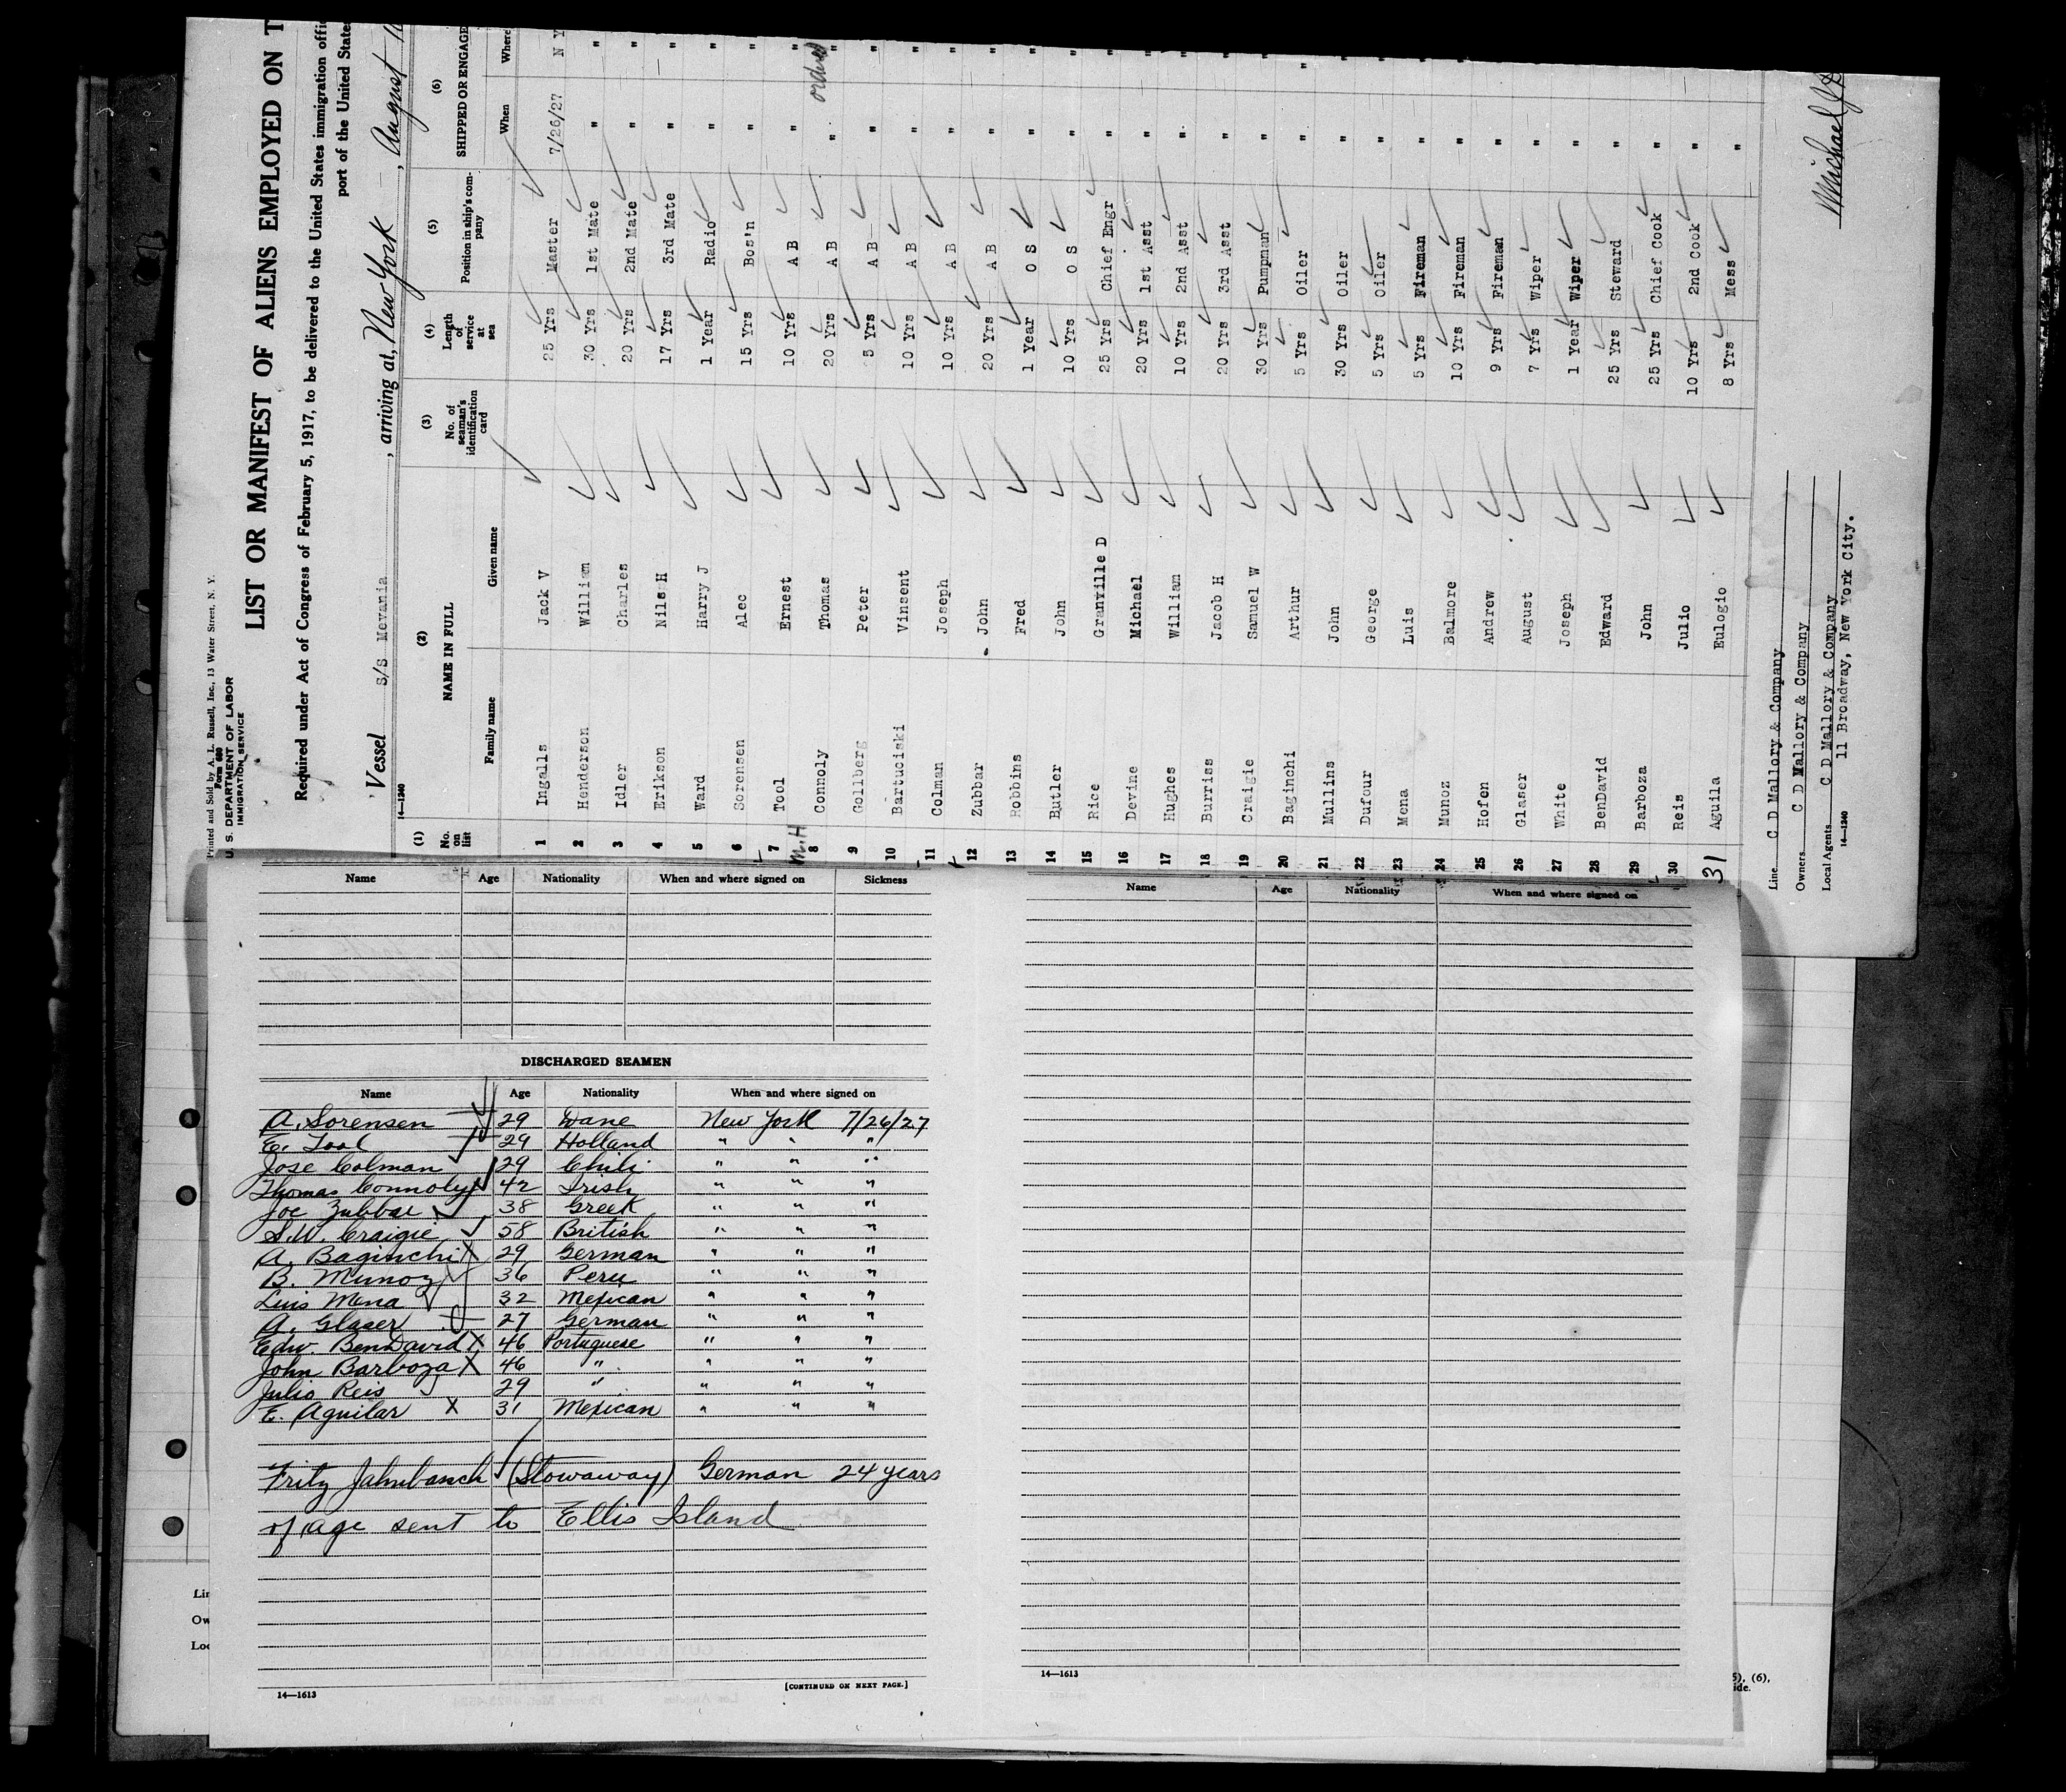 Printed and Sold by A. L. Russell, Inc., 13 Water Street, N. Y.
Form 680
U. S. DEPARTMENT OF LABOR
IMMIGRATION SERVICE
LIST OR MANIFEST OF ALIENS EMPLOYED ON T
Required under Act of Congress of February 5, 1917, to be delivered to the United States immigration offi
port of the United State
Vessel S/S Mevania, arriving at, New York, August 16
14—1240
(1) (2) (3) (4) (5) (6)
No. on list NAME IN FULL No. of seaman's identification card Length of service at sea Position in ship's company SHIPPED OR ENGAGE
Family name Given name When Where
1 Ingalls Jack V 25 Yrs Master 7/26/27 N Y
2 Henderson William 30 Yrs 1st Mate " "
3 Idler Charles 20 Yrs 2nd Mate " "
4 Erikson Nils H 17 Yrs 3rd Mate " "
5 Ward Harry J 1 Year Radio " "
6 Sorensen Alec 15 Yrs Bos'n " "
7 Tool Ernest 10 Yrs A B " "
M.H 8 Connoly Thomas 20 Yrs A B "
9 Gollberg Peter 5 Yrs A B " "
10 Bartuciski Vinsent 10 Yrs A B " "
11 Colman Joseph 10 Yrs A B " "
12 Zubbar John 20 Yrs A B " "
13 Robbins Fred 1 Year O S " "
14 Butler John 10 Yrs O S " "
15 Rice Granville D 25 Yrs Chief Engr " "
16 Devine Michael 20 Yrs 1st Asst " "
17 Hughes William 10 Yrs 2nd Asst " "
18 Burriss Jacob H 20 Yrs 3rd Asst " "
19 Craigie Samuel W 30 Yrs Pumpman " "
20 Baginchi Arthur 5 Yrs Oiler " "
21 Mullins John 30 Yrs Oiler " "
22 Dufour George 5 Yrs Oiler " "
23 Mena Luis 5 Yrs Fireman " "
24 Munoz Balmore 10 Yrs Fireman " "
25 Hofen Andrew 9 Yrs Fireman " "
26 Glaser August 7 Yrs Wiper " "
27 White Joseph 1 Year Wiper " "
28 BenDavid Edward 25 Yrs Steward " "
29 Barboza John 25 Yrs Chief Cook " "
30 Reis Julio 10 Yrs 2nd Cook " "
31 Aguila Eulogio 8 Yrs Mess " "
Line C D Mallory & Company
Owners C D Mallory & Company
Local Agents C D Mallory & Company
11 Broadway, New York City.
14—1240
Michael J
Name Age Nationality When and where signed on Sickness
DISCHARGED SEAMEN
Name Age Nationality When and where signed on
A. Sorensen 29 Dane New York 7/26/27
E. Tool 29 Holland " " "
Jose Colman 29 Chili " " "
Thomas Connoly 42 Irish " " "
Joe Zubbar 38 Greek " " "
S.W. Craigie 58 British " " "
A. Baginchi X 29 German " " "
B. Munoz 36 Peru " " "
Luis Mena 32 Mexican " " "
A. Glaser 27 German " " "
Edw. BenDavid X 46 Portuguese " " "
John Barboza X 46 " " " "
Julio Reis 29 " " " "
E. Aguilar X 31 Mexican " " "
Fritz Jahnbanch (Stowaway) German 24 years
of age sent to Ellis Island
14—1613
[CONTINUED ON NEXT PAGE.]
Name Age Nationality When and where signed on
14—1613
Lin
Ow
Loc
5), (6),
ide.